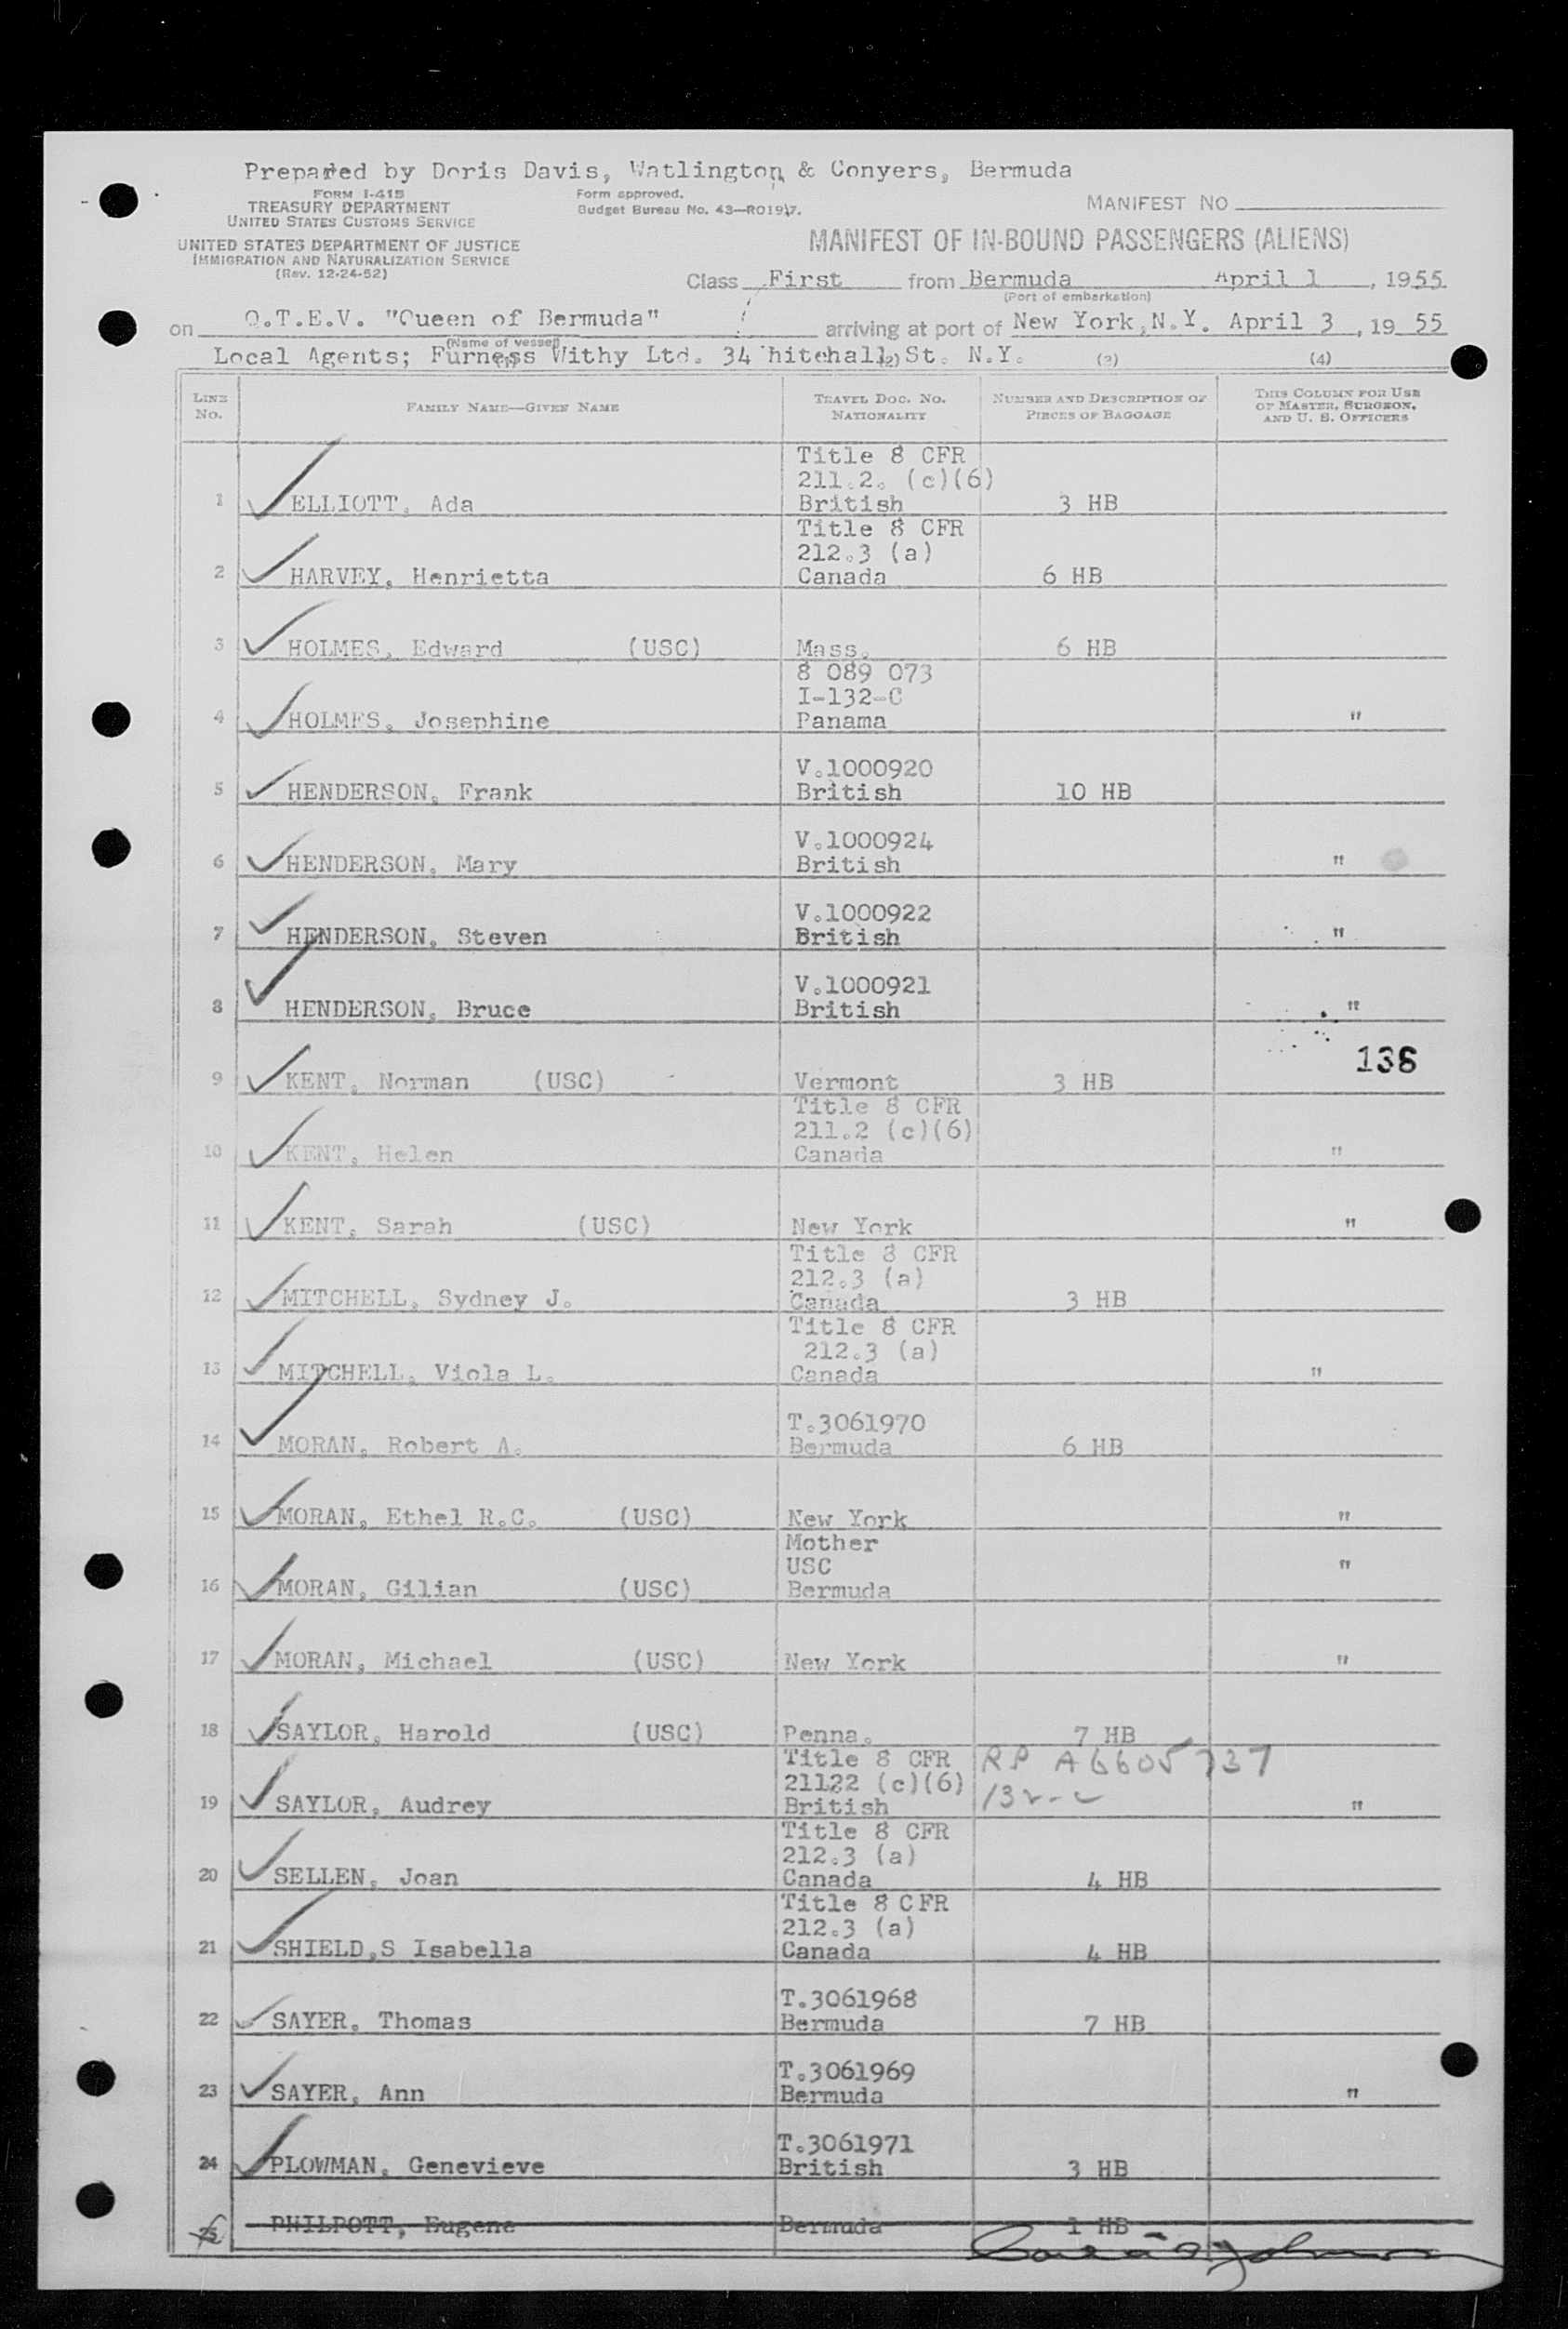 Prepared by Doris Davis, Watlington & Conyers, Bermuda
FORM I-415
TREASURY DEPARTMENT
UNITED STATES CUSTOMS SERVICE
UNITED STATES DEPARTMENT OF JUSTICE
IMMIGRATION AND NATURALIZATION SERVICE
(Rev. 12-24-52)
Form approved.
Budget Bureau No. 43—R019
MANIFEST NO
MANIFEST OF IN-BOUND PASSENGERS (ALIENS)
Class First from Bermuda April 1, 1955
(Port of embarkation)
on Q.T.E.V. "Queen of Bermuda" arriving at port of New York, N.Y. April 3, 19 55
(Name of vessel)
Local Agents; Furness Withy Ltd. 34 hitehall St. N.Y. (3) (4)
LINE NO. FAMILY NAME—GIVEN NAME TRAVEL DOC. NO. NATIONALITY NUMBER AND DESCRIPTION OF PIECES OF BAGGAGE THIS COLUMN FOR USE OF MASTER, SURGEON, AND U. S. OFFICERS
Title 8 CFR
211.2. (c)(6)
1 ELLIOTT, Ada British 3 HB
Title 8 CFR
212.3 (a)
2 HARVEY, Henrietta Canada 6 HB
3 HOLMES, Edward (USC) Mass. 6 HB
8 089 073
I-132-C
4 HOLMES, Josephine Panama "
V.1000920
5 HENDERSON, Frank British 10 HB
V.1000924
6 HENDERSON, Mary British "
V.1000922
7 HENDERSON, Steven British "
V.1000921
8 HENDERSON, Bruce British "
138
9 KENT, Norman (USC) Vermont 3 HB
Title 8 CFR
211.2 (c)(6)
10 KENT, Helen Canada "
11 KENT, Sarah (USC) New York "
Title 8 CFR
212.3 (a)
12 MITCHELL, Sydney J. Canada 3 HB
Title 8 CFR
212.3 (a)
13 MITCHELL, Viola L. Canada "
T.3061970
14 MORAN, Robert A. Bermuda 6 HB
15 MORAN, Ethel R.C. (USC) New York "
Mother
USC "
16 MORAN, Gilian (USC) Bermuda
17 MORAN, Michael (USC) New York "
18 SAYLOR, Harold (USC) Penna. 7 HB
Title 8 CFR RP A6605737
21122 (c)(6) 132-C
19 SAYLOR, Audrey British "
Title 8 CFR
212.3 (a)
20 SELLEN, Joan Canada 4 HB
Title 8 CFR
212.3 (a)
21 SHIELD,S Isabella Canada 4 HB
T.3061968
22 SAYER, Thomas Bermuda 7 HB
T.3061969
23 SAYER, Ann Bermuda "
T.3061971
24 PLOWMAN, Genevieve British 3 HB
25 PHILPOTT, Eugene Bermuda 1 HB